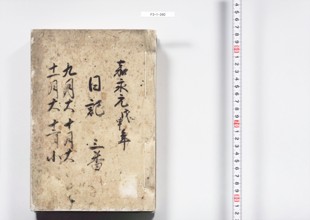 嘉永元戊申年
日記 三番
九月大 十月大
十一月大 十二月小